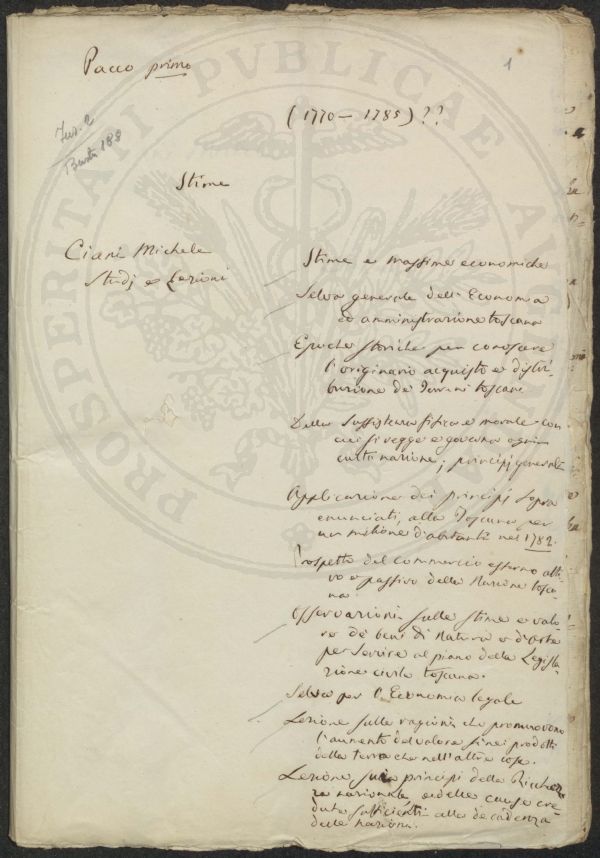 Pacco primo
1
(1770 – 1785)??
Fas. 2
Busta 188
Stime
Ciani Michele
Studj e Lezioni
Stime e massime economiche
Selva generale dell'Economia
ed amministrazione toscana
Epoche storiche per conoscere
l'originario acquisto e distri-
buzione de' Terreni toscani
Della Sussistenza fisica e morale con
cui si regge e governa ogni
culta nazione; principj generali
Applicazione dei principj sopra
enunciati, alla Toscana per
un milione d'abitanti nel 1782.
Prospetto del commercio esterno atti-
vo e passivo della Nazione tosca-
na
Osservazioni sulle stime e valo-
re de' beni di Natura e d'Arte
per servire al piano della Legisla-
zione civile toscana.
Selva per l'Economia legale
Lezione sulle ragioni che promuovono
l'aumento del valore sì nei prodotti
della terra che nell'altre cose.
Lezione sui principj della Ricchez-
za nazionale e delle cause cre-
dute sufficienti alla decadenza
delle nazioni.
PROSPERITATI PVBLICAE AVGENDAE